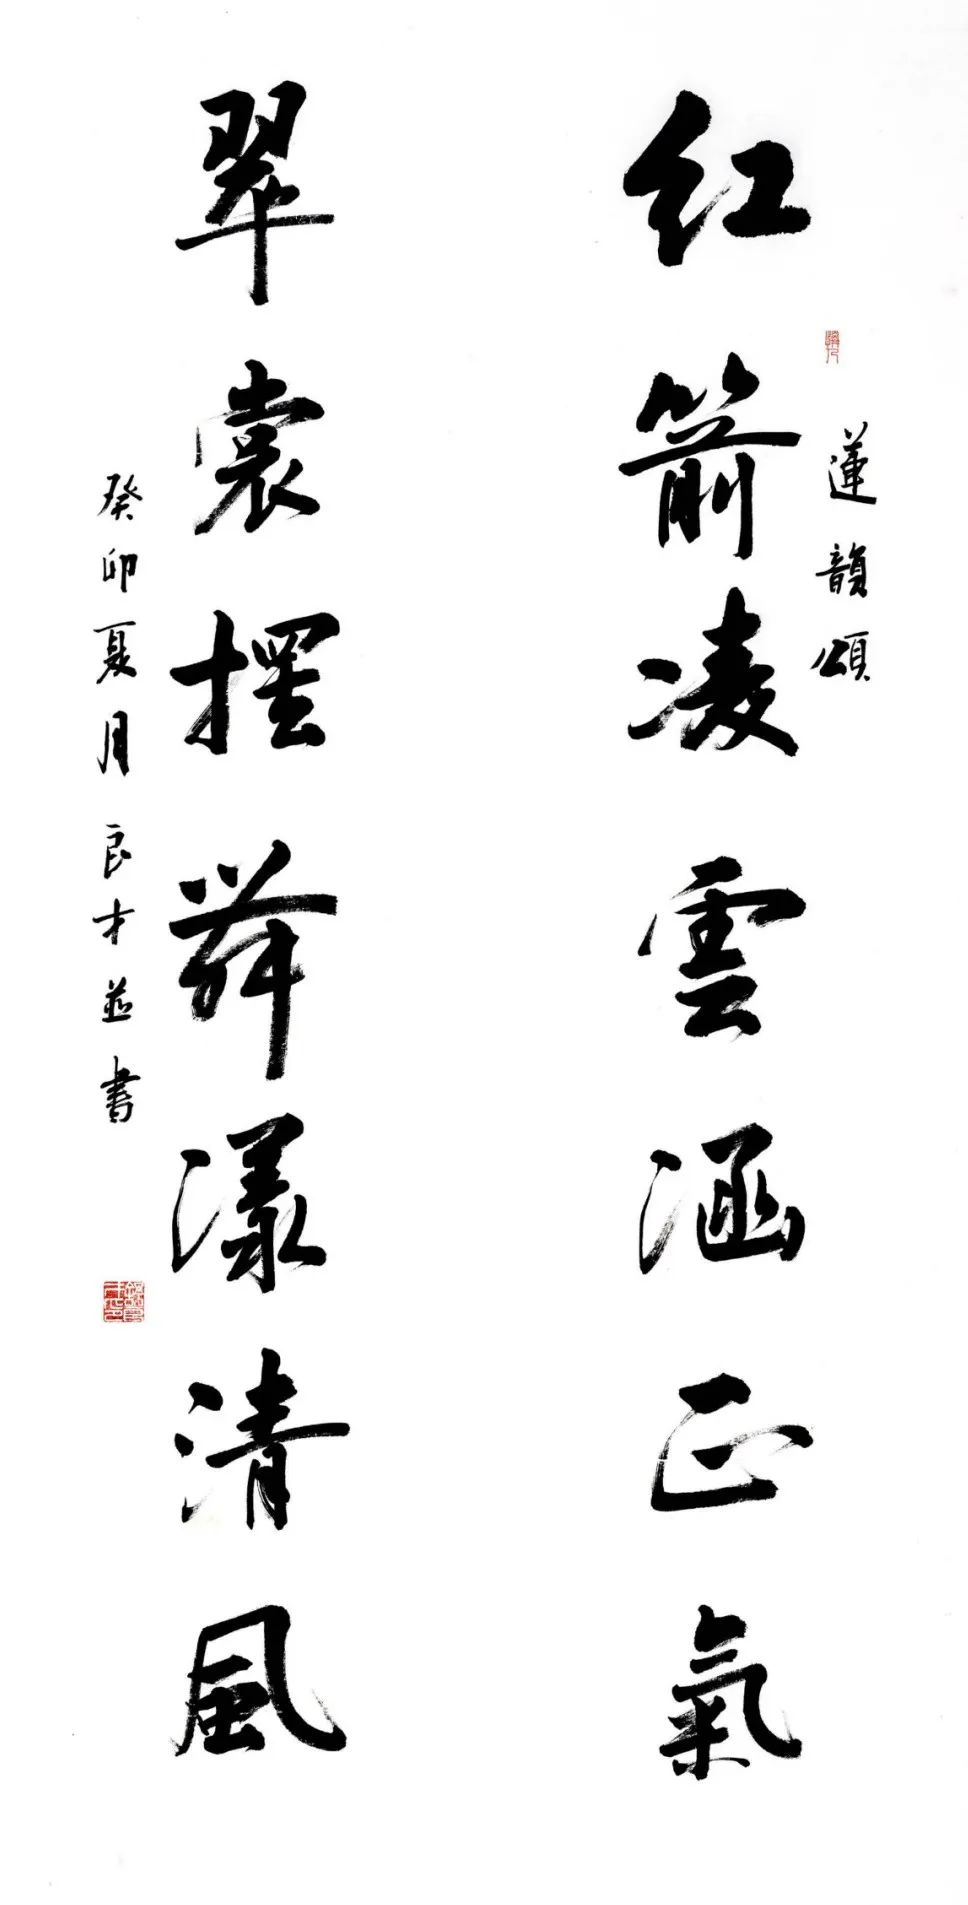 蓮韻頌
红箭凌雲涵正氣
翠裳摆舞漾清風
癸卯夏月良才並書